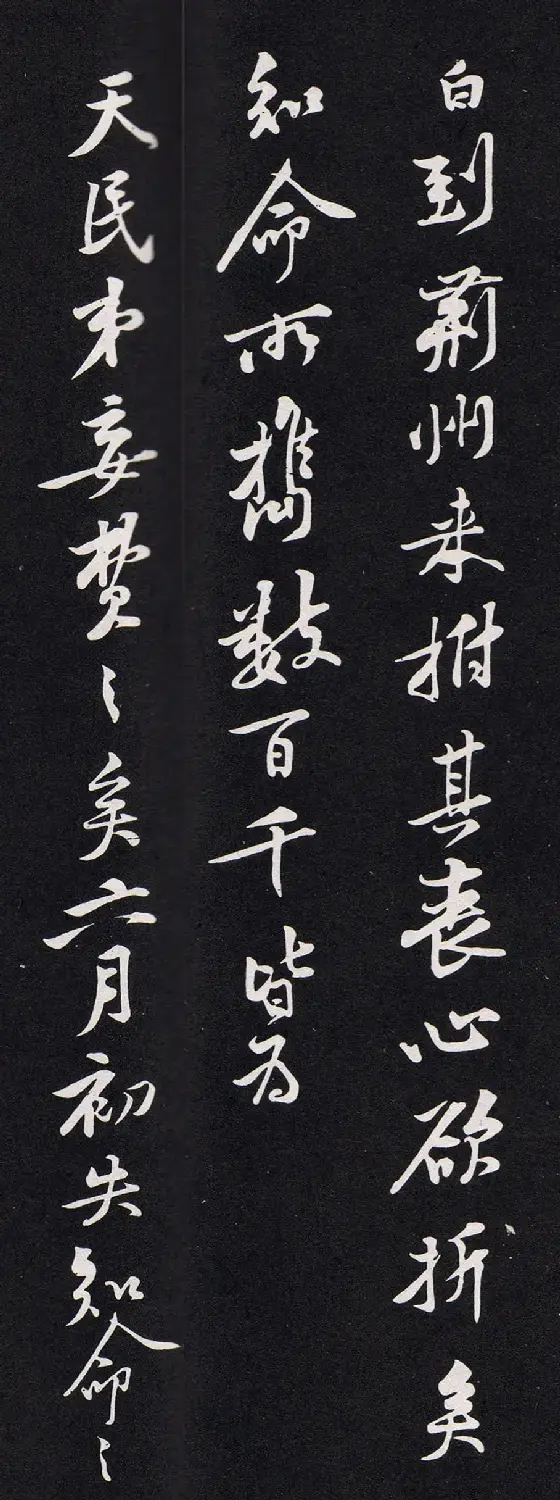 白到荆州来拊其丧心欲折矣
知命所携数百千皆为
天民弟妄费〻矣六月初失知命〻